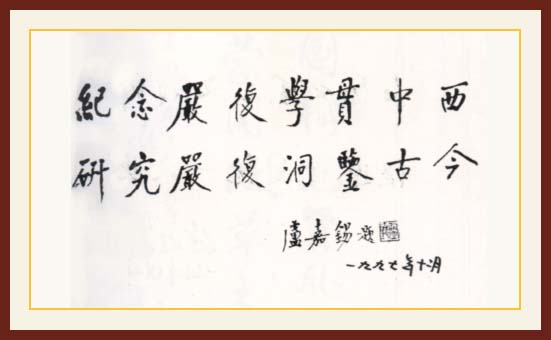 紀念嚴復學貫中西
研究嚴復洞鑒古今
盧嘉錫題
一九九七年十月